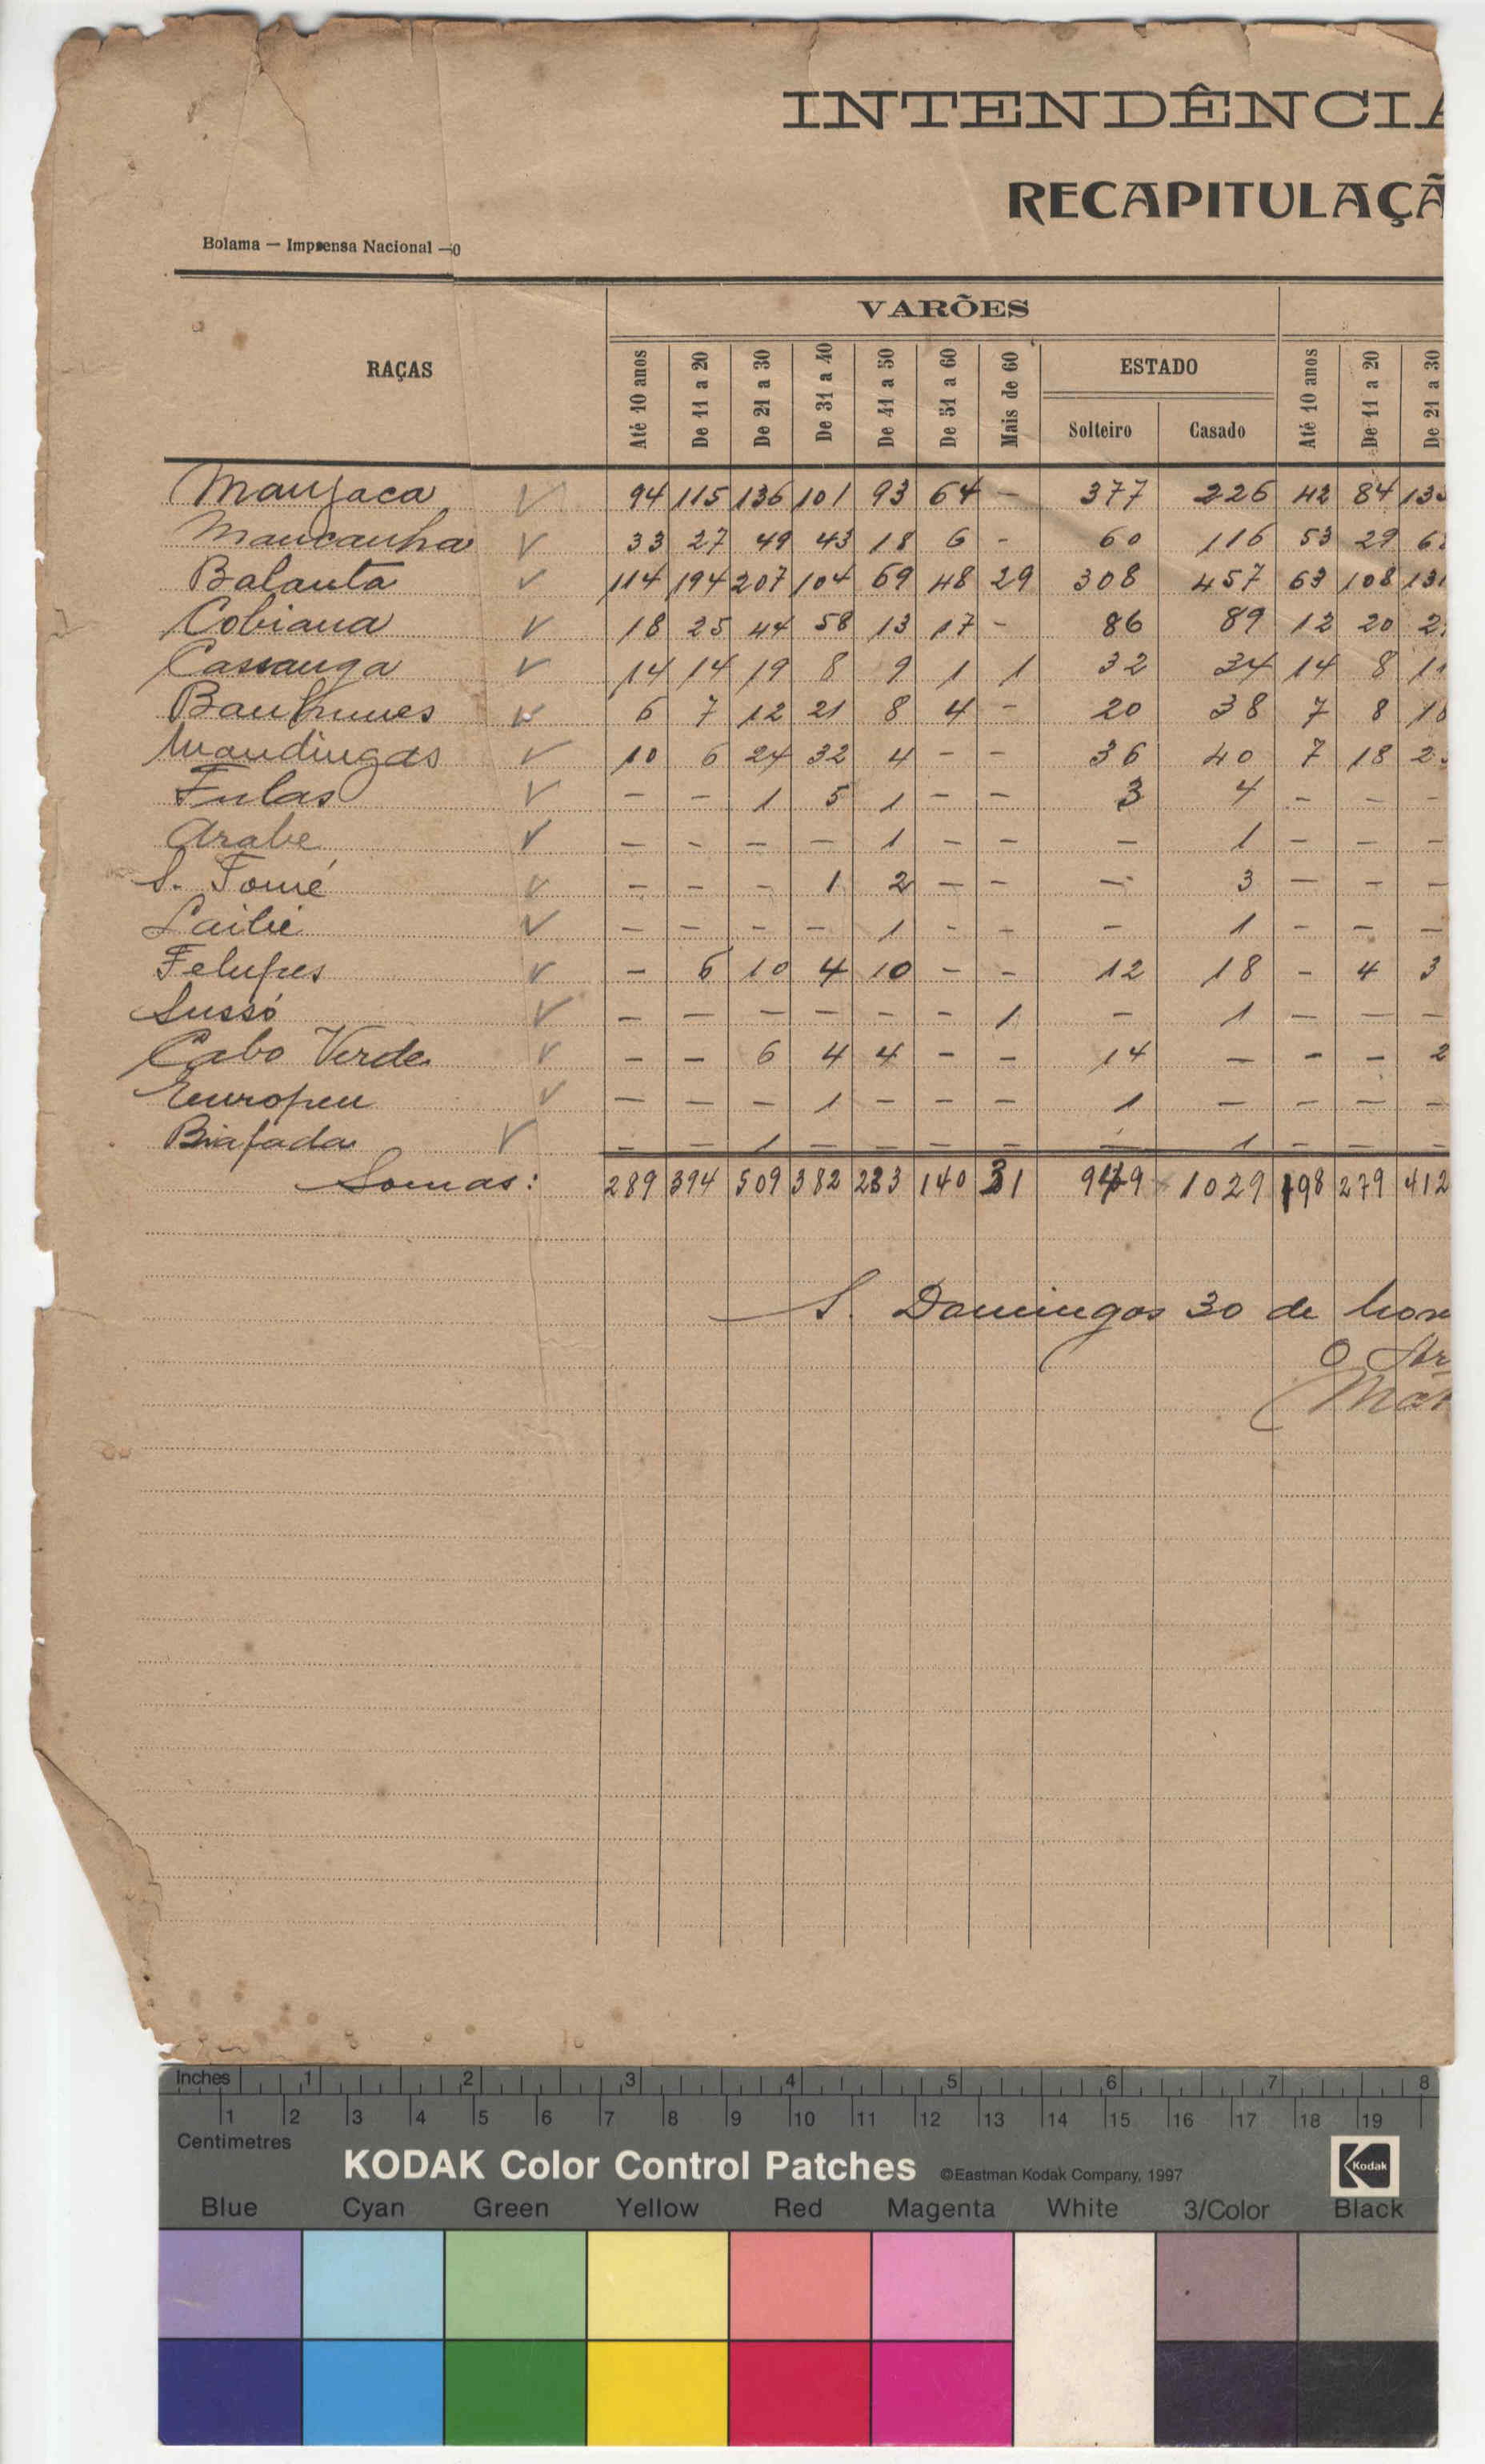 INTENDÊNCIA
RECAPITULAÇÃ
Bolama — Imprensa Nacional —0
RAÇAS
VARÕES
Até 10 anos De 11 a 20 De 21 a 30 De 31 a 40 De 41 a 50 De 51 a 60 Mais de 60 ESTADO Até 10 anos De 11 a 20 De 21 a 30
Solteiro Casado
Manjaca V 94 115 136 101 93 64 - 377 226 42 84
Mancanha V 33 27 49 43 18 6 - 60 116 53 29
Balanta V 114 194 207 104 69 48 29 308 457 63 108
Cobiana V 18 25 44 58 13 17 - 86 89 12 20
Cassanga V 14 14 19 8 9 1 1 32 34 14 8
Banhunes V 6 7 12 21 8 4 - 20 38 7 8
Mandingas V 10 6 24 32 4 - - 36 40 7 18
Fulas V - - 1 5 1 - - 3 4 - - -
Arabe V - - - - 1 - - - 1 - - -
S. Tomé V - - - 1 2 - - - 3 - - -
V - - - - 1 - - - 1 - - -
Felupes V - 6 10 4 10 - - 12 18 - 4 3
Sussó V - - - - - - 1 - 1 - - -
Cabo Verde V - - 6 4 4 - - 14 - - - 2
Europeu V - - - 1 - - - 1 - - - -
Biafada V - - 1 - - - - - 1 - - -
Somas: 289 394 509 382 233 140 31 949 1029 198 279 412
S. Domingos 30 de
O
Inches 1 2 3 4 5 6 7 8
1 2 3 4 5 6 7 8 9 10 11 12 13 14 15 16 17 18 19
Centimetres
KODAK Color Control Patches ©Eastman Kodak Company, 1997 Kodak
Blue Cyan Green Yellow Red Magenta White 3/Color Black